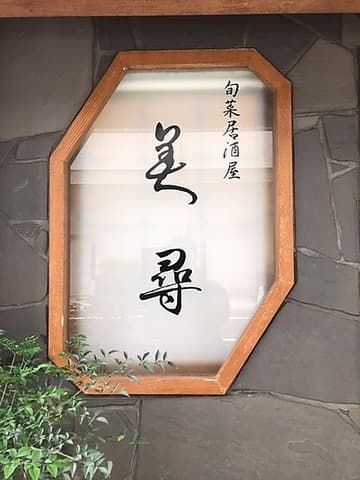 旬菜居酒屋
美尋